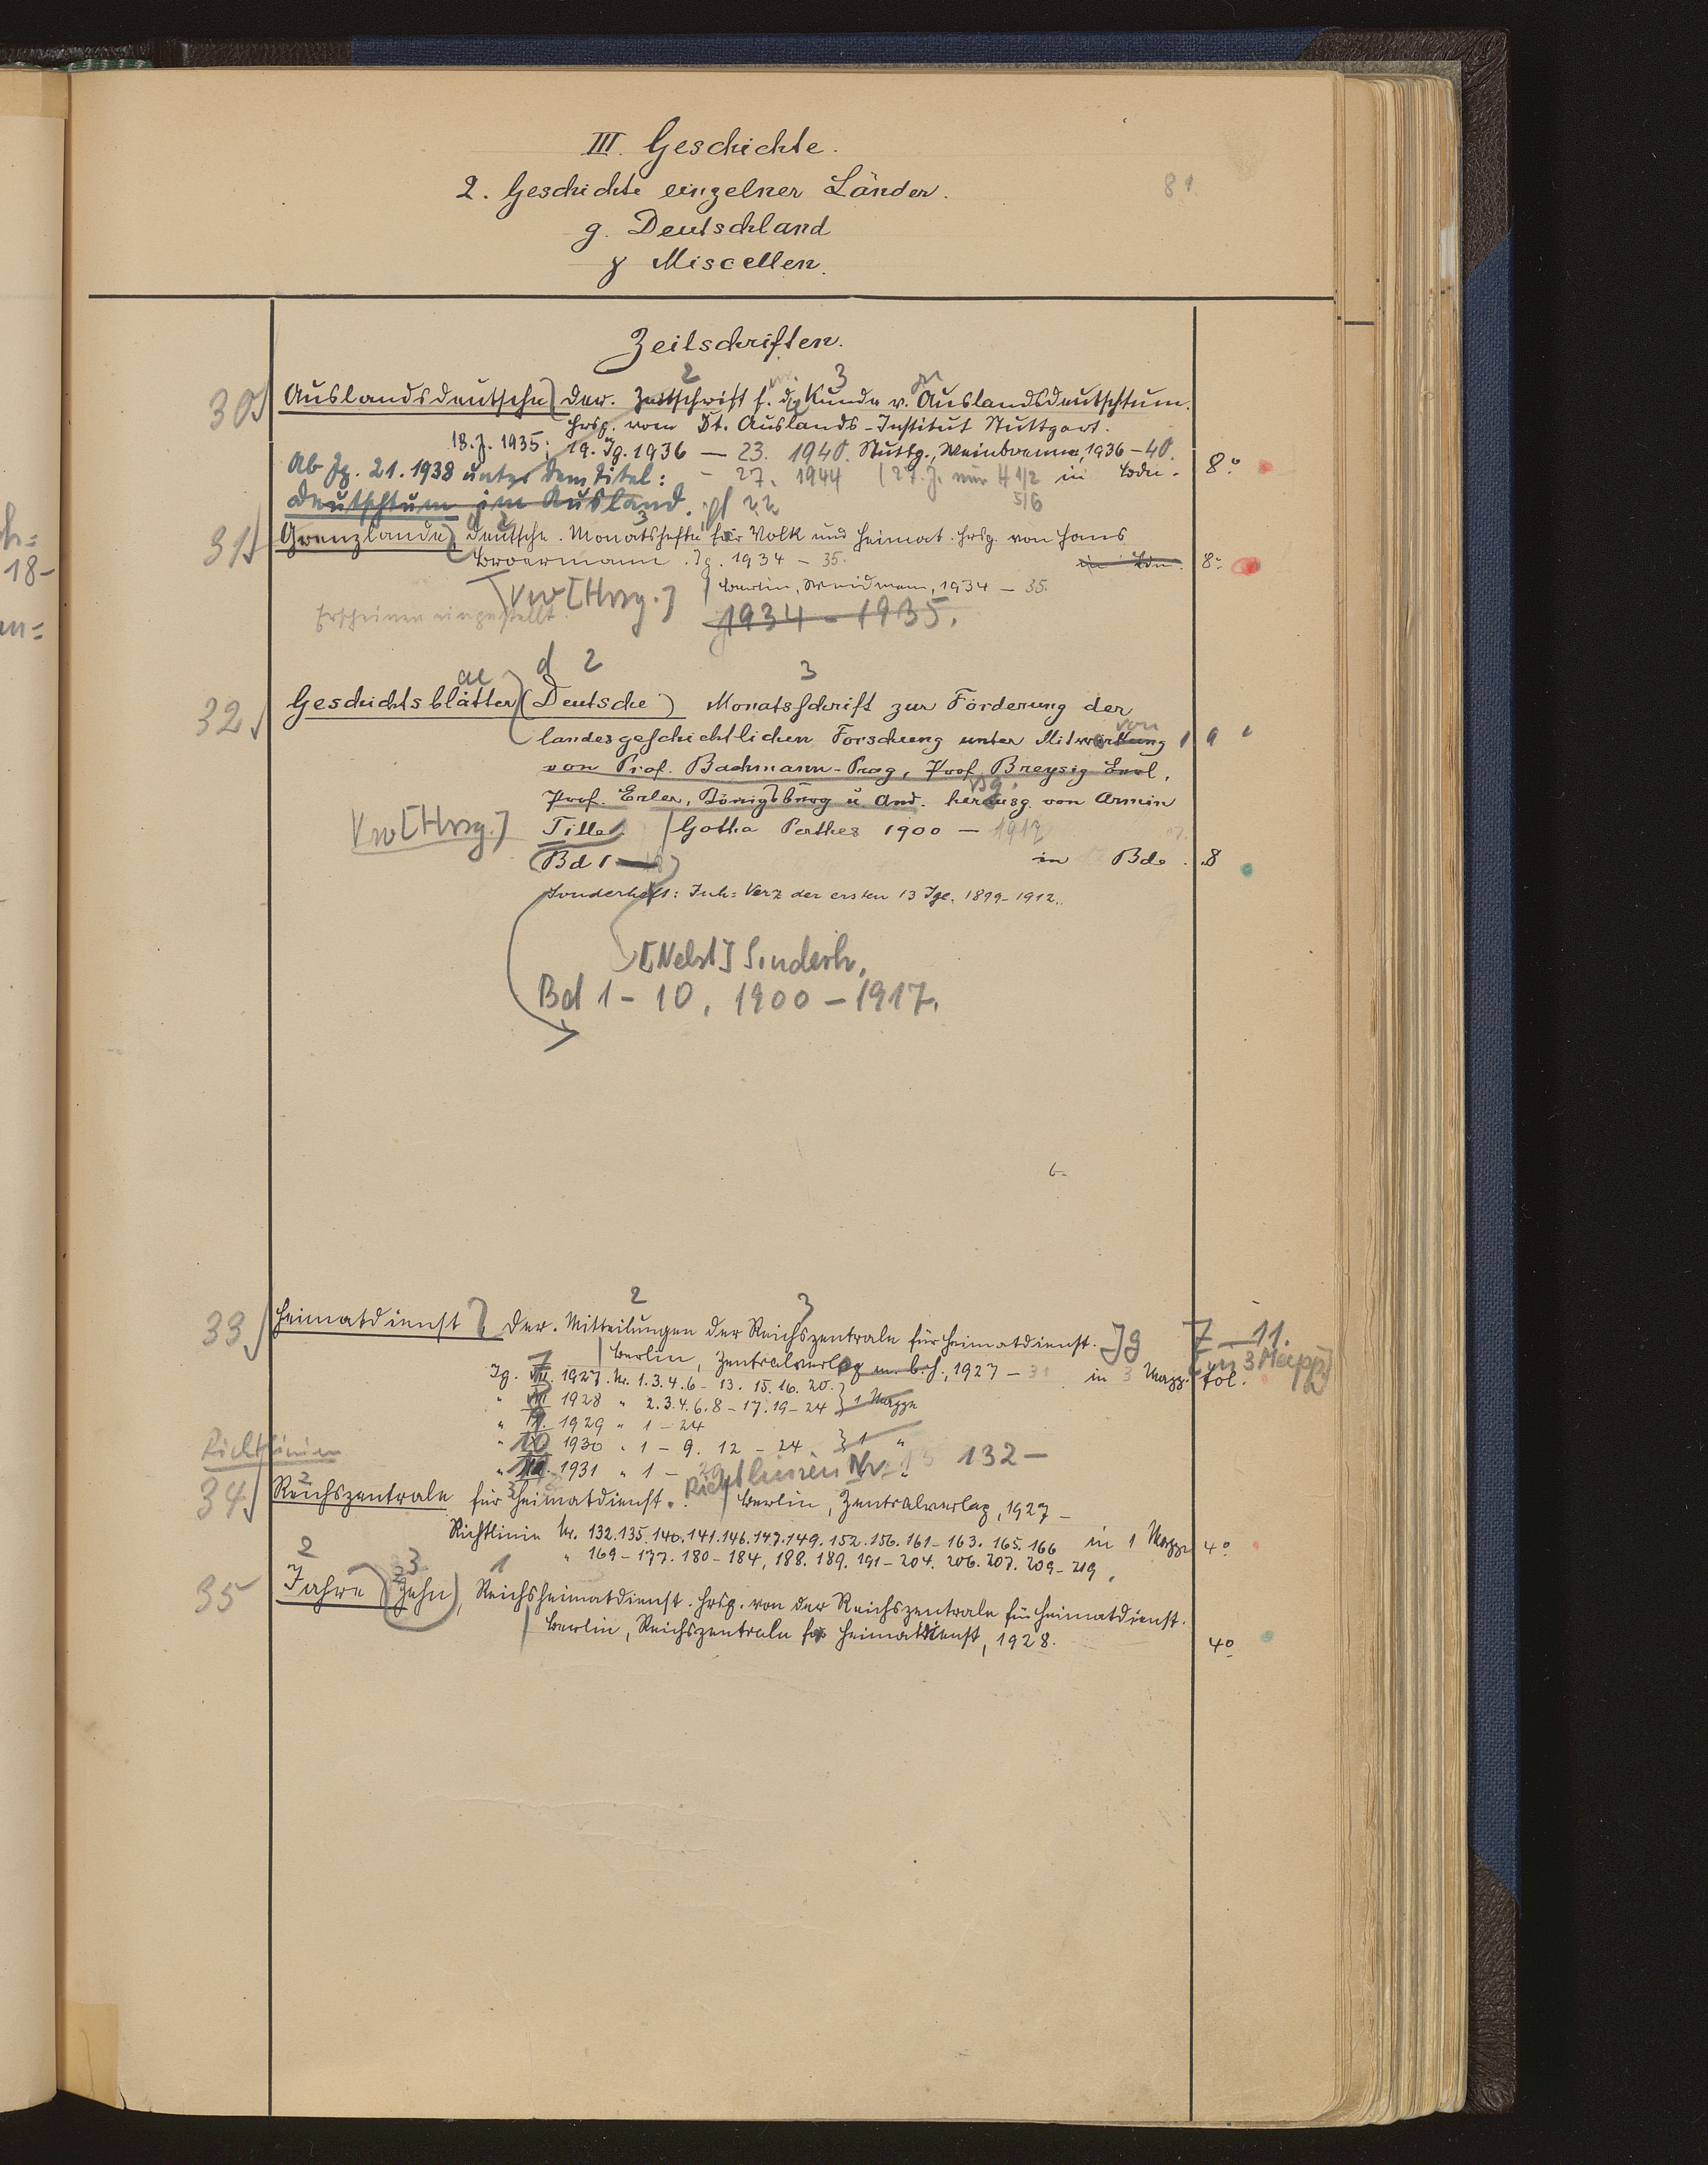 III. Geschichte.
2. Geschichte einzelner Länder.
81.
g. Deutschland
γ Miscellen.
Zeitschriften.
2 3
30 Auslandsdeutsche, Der. Zeitschrift f. d. Kunde v. Auslandsdeutschtum.
Hrsg. vom Dt. Auslands-Institut Stuttgart.
18. J. 1935; 19. Jg. 1936 — 23. 1940. Stuttg., Weinbrenner, 1936 – 40.
Ab Jg. 21. 1938 unter dem Titel: – 27. 1944 (27. J. nur H 1/2 in Bdn. 8°
Deutschtum im Ausland. 5/6
2 3
31 Grenzlande, Deutsche. Monatshefte für Volk und Heimat. Hrsg. von Hans
Broermann. Jg. 1934 – 35. in Bdn. 8°
Berlin, Weidmann, 1934 – 35.
Vw [Hrsg.]
Erscheinen eingestellt. 1934 – 1935.
ae d 2 3
32 Geschichtsblätter (Deutsche) Monatsschrift zur Förderung der
von
landesgeschichtlichen Forschung unter Mitwirkung
von Prof. Bachmann-Prag, Prof. Breysig Berl,
Prof. Erler, Königsburg u. And. herausg. von Armin
Vw [Hrsg.] Tille. Gotha Perthes 1900 – 1917
Bd 1 – 18 in Bde. 8
Sonderheft: Inh: Verz der ersten 13 Jge. 1899–1912.
[Nebst] Sonderh.
Bd 1 – 10. 1900 – 1917.
2 3
33 Heimatdienst, Der. Mitteilungen der Reichszentrale für Heimatdienst. Jg 7 – 11.
Berlin, Zentralverlag m. b. H., 1927 – 31 in 3 Mapp. fol. in 3 Mapp
Jg. 7 1927. Nr. 1. 3. 4. 6 – 13. 15. 16. 20.
" 1928 " 2. 3. 4. 6. 8 – 17. 19 – 24 } 1 Mappe
" 9 1929 " 1 – 24
" 10 1930 " 1 – 9. 12 – 24. } 1 "
" 11 1931 " 1 –
Richtlinien
Richtlinien Nr. 132 –
34 Reichszentrale für Heimatdienst. Berlin, Zentralverlag, 1927 –
Richtlinie Nr. 132. 135. 140. 141. 146. 147. 149. 152. 156. 161 – 163. 165. 166 in 1 Mappe 4°
" 169 – 177. 180 – 184, 188. 189. 191 – 204. 206. 207. 209 – 219.
2 3 1
35 Jahre (Zehn), Reichsheimatdienst. Hrsg. von der Reichszentrale für Heimatdienst.
Berlin, Reichszentrale für Heimatdienst, 1928. 4°